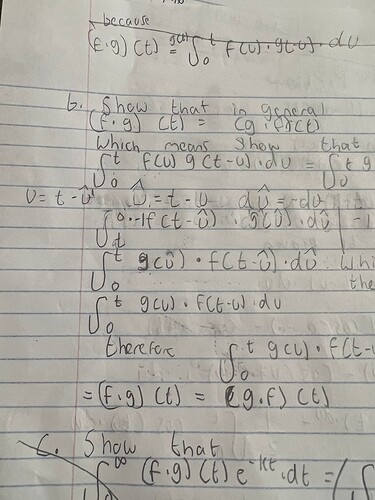 because
(f·g)(t) = ∫₀ᵗ f(u)·g(-u)·du
b. Show that in general
(f·g)(t) = (g·f)(t)
which means show that
∫₀ᵗ f(u) g(t-u)·du = ∫₀ᵗ g
u = t-û û = t-u dû = -du
∫ₜ⁰ -1f(t-û)·g(û)·dû
∫₀ᵗ g(û)·f(t-û)·dû whi
the
∫₀ᵗ g(u)·f(t-u)·du
therefore ∫₀ᵗ g(u)·f(t-
= (f·g)(t) = (g·f)(t)
c. Show that
∫₀^∞ (f·g)(t) e^-kt·dt = (∫